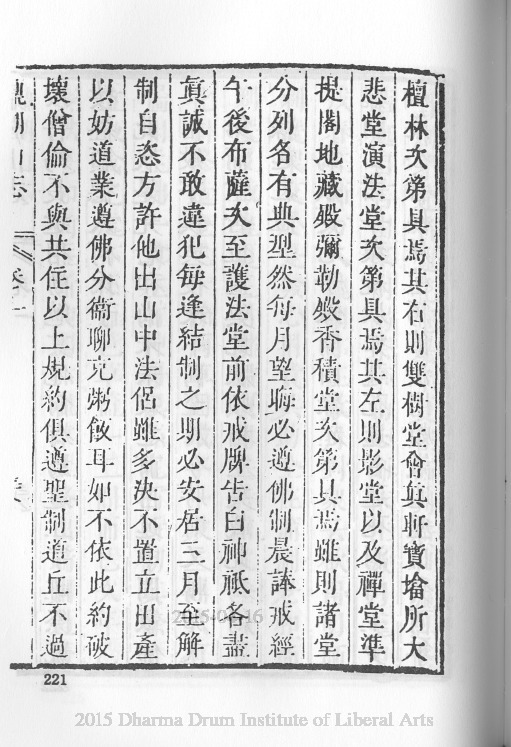 檀林次第具焉其右則雙樹堂會眞軒寶墖所大
悲堂演法堂次第具焉其左則影堂以及禪堂準
提閣地藏殿彌勒殿香積堂次第具焉雖則諸堂
分列各有典型然每月望晦必遵佛制晨誦戒經
午後布薩次至護法堂前依戒牌告白神祇各盡
眞誠不敢違犯每逢結制之期必安居三月至解
制自恣方許他出山中法侶雖多決不置立田產
以妨道業遵佛分衞聊充粥飯耳如不依此約破
壞僧倫不與共住以上規約俱遵聖制道丘不過
山志
221
2015 Dharma Drum Institute of Liberal Arts